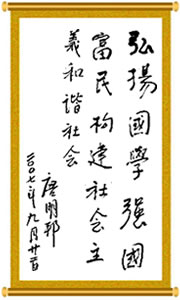 弘揚國學強國
富民构建社会主
義和谐社会
唐明邦
二〇〇七年九月廿二日